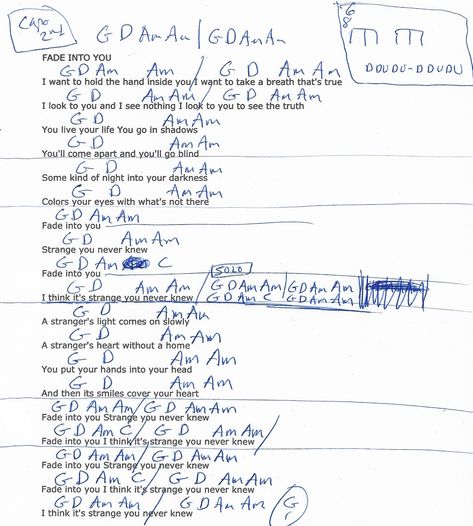 Capo 2nd
G D Am Am / G D Am Am
6
8
DDUDU-DDUDU
FADE INTO YOU
G D Am Am / G D Am Am
I want to hold the hand inside you I want to take a breath that's true
G D Am Am / G D Am Am
I look to you and I see nothing I look to you to see the truth
G D Am Am
You live your life You go in shadows
G D Am Am
You'll come apart and you'll go blind
G D Am Am
Some kind of night into your darkness
G D Am Am
Colors your eyes with what's not there
G D Am Am
Fade into you
G D Am Am
Strange you never knew
G D Am C
Fade into you
SOLO
G D Am Am / G D Am Am / G D Am Am
I think it's strange you never knew / G D Am C / G D Am Am
G D Am Am
A stranger's light comes on slowly
G D Am Am
A stranger's heart without a home
G D Am Am
You put your hands into your head
G D Am Am
And then its smiles cover your heart
G D Am Am / G D Am Am
Fade into you Strange you never knew
G D Am C / G D Am Am /
Fade into you I think it's strange you never knew
G D Am Am / G D Am Am
Fade into you Strange you never knew
G D Am C / G D Am Am
Fade into you I think it's strange you never knew
G D Am Am / G D Am Am G
I think it's strange you never knew